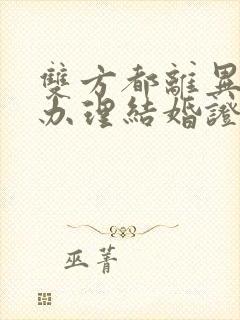 雙方都離異
办理結婚證
巫菁